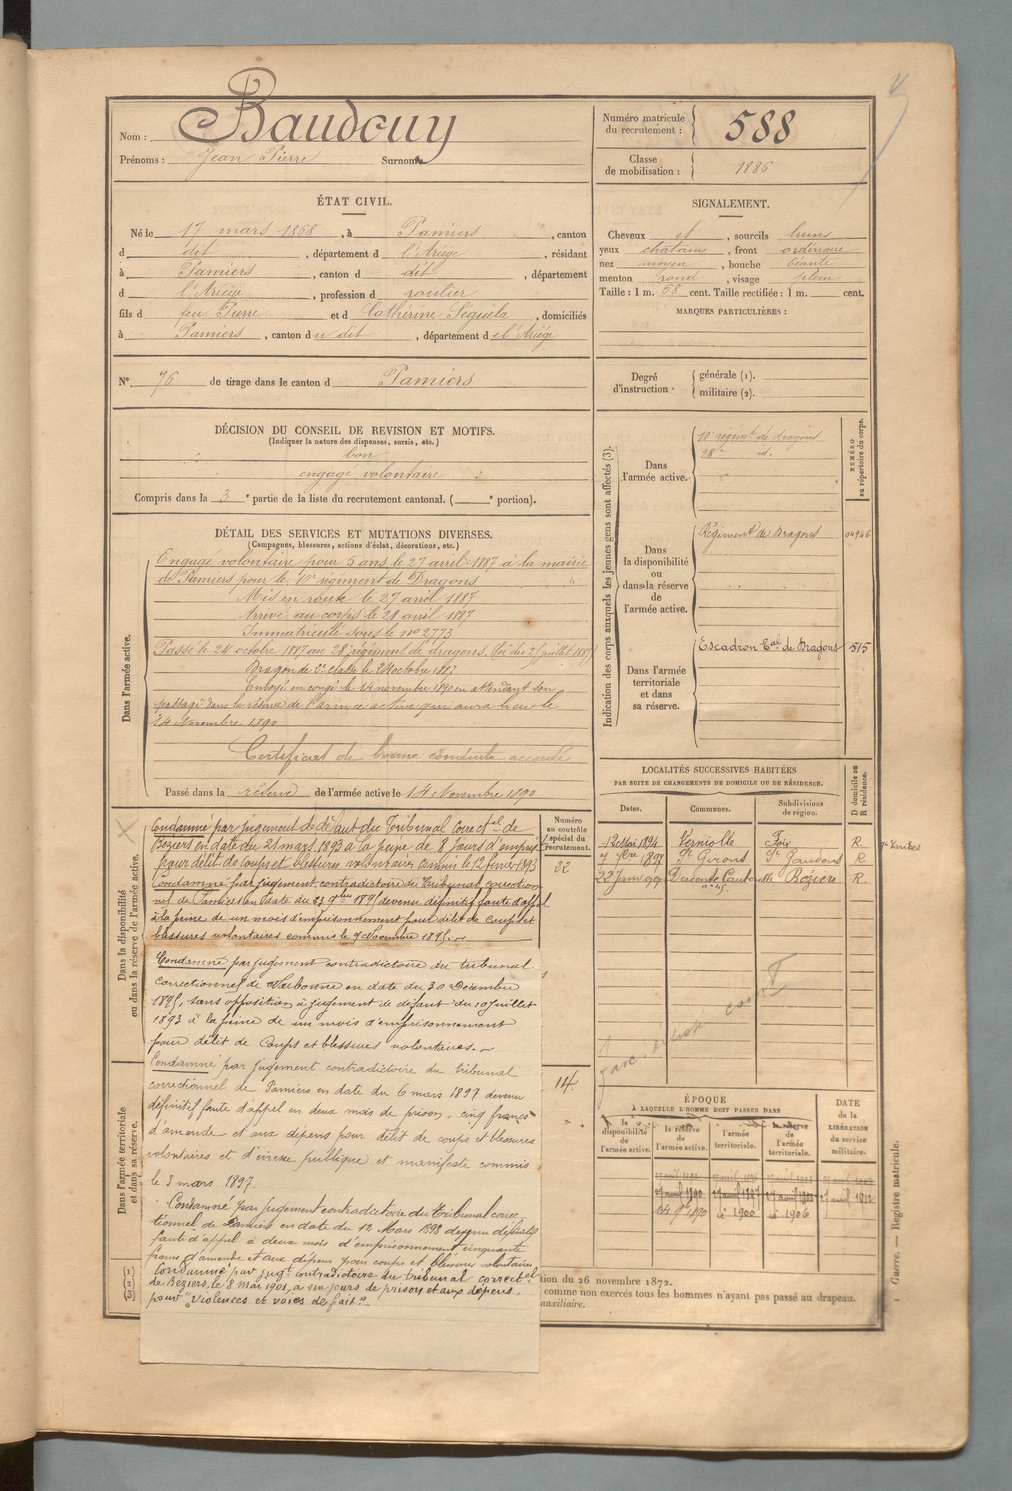 Nom : Baudouy
Prénoms : Jean Pierre Surnoms
Numéro matricule du recrutement : 588
Classe de mobilisation : 1886
ÉTAT CIVIL.
Né le 17 mars 1868, à Pamiers, canton
d dit, département d l'Ariège, résidant
à Pamiers, canton d dit, département
d l'Ariège, profession d roulier
fils d feu Pierre et d Catherine Séguéla, domiciliés
à Pamiers, canton du dit, département d el'Ariège
N° 76 de tirage dans le canton d Pamiers
SIGNALEMENT.
Cheveux et, sourcils bruns
yeux chatains, front ordinaire
nez moyen, bouche béante
menton rond, visage plein
Taille : 1 m. 68 cent. Taille rectifiée : 1 m. cent.
MARQUES PARTICULIÈRES :
Degré d'instruction. générale (1).
militaire (2).
DÉCISION DU CONSEIL DE REVISION ET MOTIFS.
(Indiquer la nature des dispenses, sursis, etc.)
bon
engagé volontaire
Compris dans la 3e partie de la liste du recrutement cantonal. ( e portion).
DÉTAIL DES SERVICES ET MUTATIONS DIVERSES.
(Campagnes, blessures, actions d'éclat, décorations, etc.)
Dans l'armée active.
Engagé volontaire pour 5 ans le 27 avril 1887 à la mairie
de Pamiers pour le 10e régiment de Dragons
Mis en route le 27 avril 1887
Arrivé au corps le 28 avril 1887
Immatriculé sous le n° 2773
Passé le 24 octobre 1887 au 28e régiment de dragons. (loi du 25 juillet 1887)
Dragon de 2e classe le 24 octobre 1887
Envoyé en congé le 14 novembre 1890 en attendant son
passage dans la réserve de l'armée active qui aura lieu le
14 Novembre 1890
Certificat de bonne conduite accordé
Passé dans la réserve de l'armée active le 14 Novembre 1890
Indication des corps auxquels les jeunes gens sont affectés (3).
NUMÉRO au répertoire du corps.
Dans l'armée active.
10e régiment de dragons
28e id.
Dans la disponibilité ou dans la réserve de l'armée active.
Régiment de Dragons 04946
Dans l'armée territoriale et dans sa réserve.
Escadron Tal de Dragons 515
LOCALITÉS SUCCESSIVES HABITÉES
PAR SUITE DE CHANGEMENTS DE DOMICILE OU DE RÉSIDENCE.
Dates. Communes. Subdivisions de région. D domicile ou R résidence.
12 Mai 1894 Verniolle Foix R.
7 7bre 1897 St Girons St Gaudens R
Béziers R.
Dans la disponibilité ou dans la réserve de l'armée active.
Numéro au contrôle spécial du recrutement.
22
Condamné par jugement de défaut du Tribunal Correctel de
Béziers en date du 21 mars 1893 à la peine de 8 jours d'empris
pour délit de coups et blessures volontaires commis le 12 février 1893
Condamné par jugement contradictoire du Tribunal correction
nel de Pamiers en date du 23 9bre 1895 devenu définitif faute d'appel
à la peine de un mois d'emprisonnement pour délit de coups et
blessures volontaires commis le 9 Novembre 1895.
Condamné par jugement contradictoire du tribunal
correctionnel de Narbonne en date du 30 Décembre
1895, sans opposition à jugement de défaut du 10 Juillet
1893 à la peine de un mois d'emprisonnement
pour délit de Coups et blessures volontaires.
Condamné par jugement contradictoire du tribunal
correctionnel de Pamiers en date du 6 mars 1897 devenu
définitif faute d'appel en deux mois de prison, cinq francs
d'amende et aux dépens pour délit de coups et blessures
volontaires et d'ivresse publique et manifeste commis
le 3 mars 1897.
Condamné par jugement contradictoire du Tribunal correc-
tionnel de Pamiers en date du 12 Mars 1898 devenu définitif
faute d'appel à deux mois d'emprisonnement cinquante
francs d'amende et aux dépens pour coups et blessures volontaires
Condamné par jugt contradictoire du tribunal correctel
de Béziers, le 8 mai 1901, à six jours de prison et aux dépens,
pour "violences et voies de fait".
Dans l'armée territoriale et dans sa réserve.
14
ÉPOQUE
À LAQUELLE L'HOMME DOIT PASSER DANS
la disponibilité de l'armée active. la réserve de l'armée active. l'armée territoriale. la réserve de l'armée territoriale.
DATE de la LIBÉRATION du service militaire.
14 9bre 1890 1900 1906
(1)
(2)
(3)
tion du 26 novembre 1872.
comme non exercés tous les hommes n'ayant pas passé au drapeau.
auxiliaire.
Guerre. — Registre matricule.